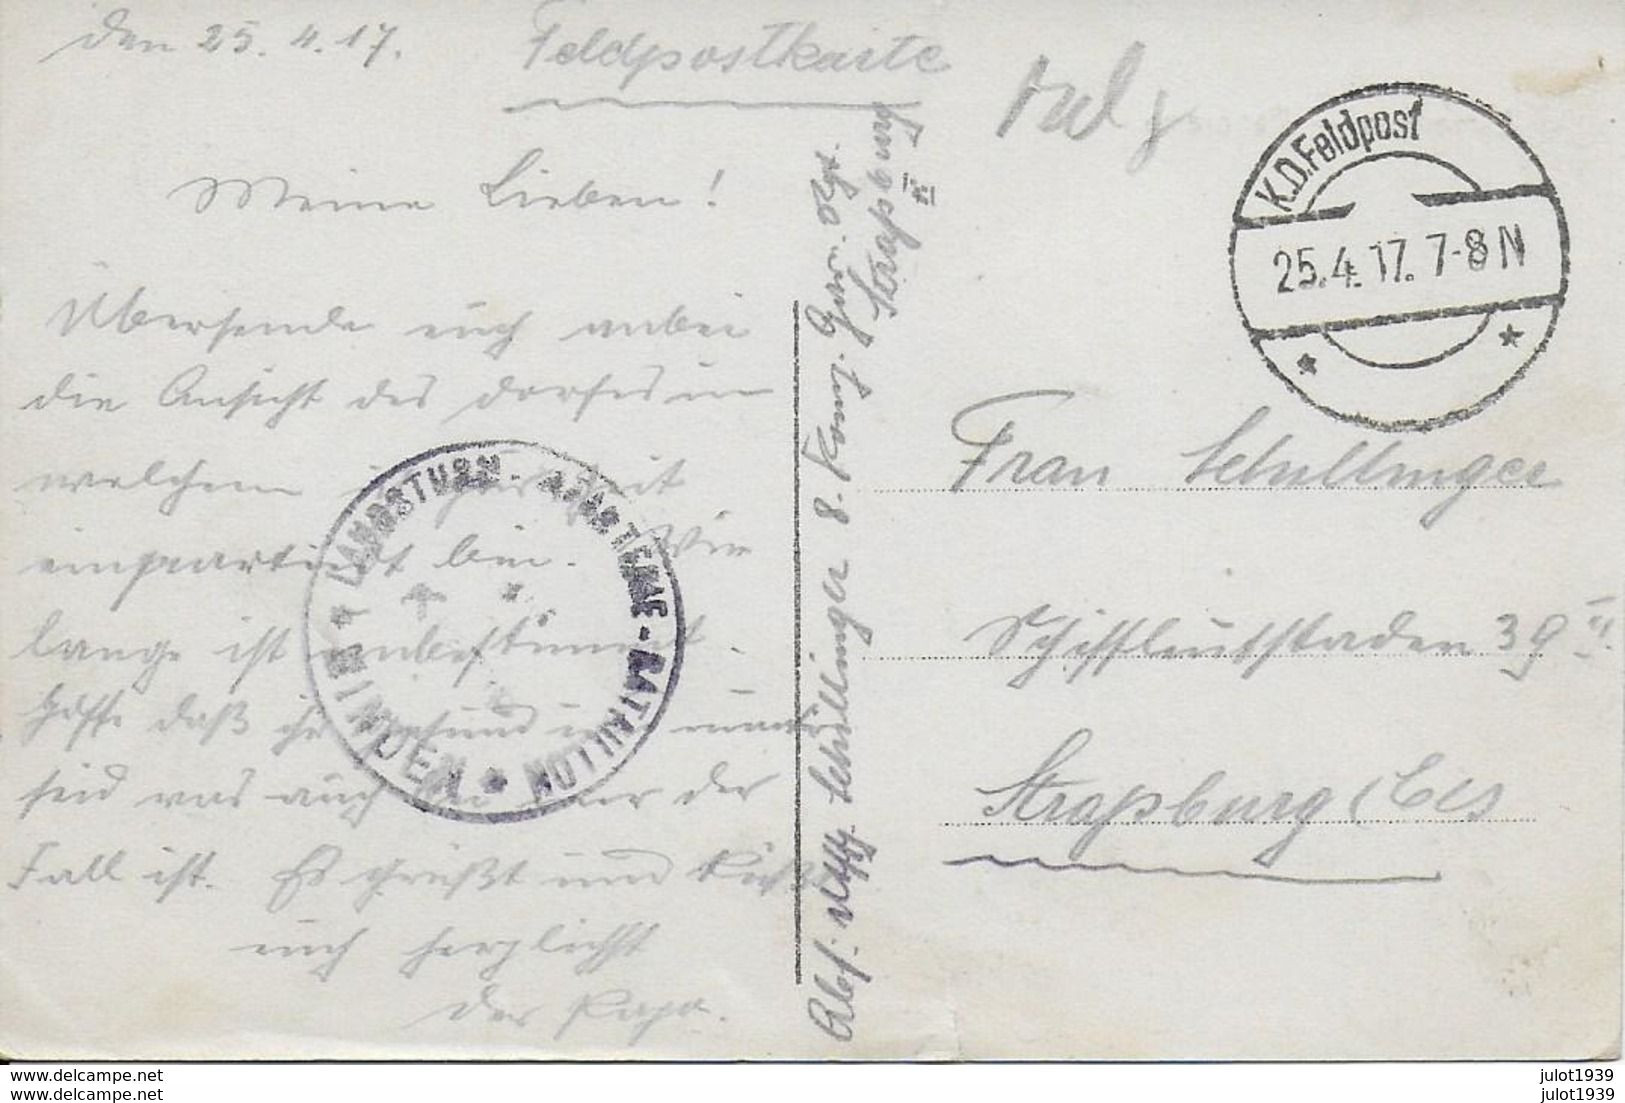 den 25.4.17. Feldpostkarte
Meine Lieben!
Übersende euch anbei
die Ansicht des Dorfes in
welchem
einquartiert bin. Wie
lange ist unbestimmt.
Hoffe daß ihr gesund und munter
seid was auch bei mir der
Fall ist. Es grüßt und küßt
euch herzlichst
der Papa.
LANDSTURM - BATAILLON
* MINDEN *
Abs: Schillinger 8. Komp.
K.D.Feldpost
25.4.17. 7-8 N
* *
Frau Schillinger
Schiffleutstaden 39 II
Straßburg (Els
www.delcampe.net
www.delcampe.net
julot1939
julot1939